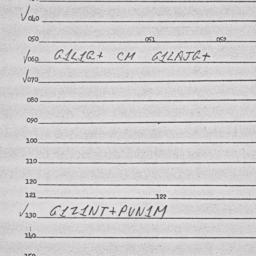 √040
050 051 052
√060 G1L1Q+ CM G1LAJQ+
√070
080
090
100
110
120
121 122
√130 G1Z1NT+PUN1M
140
150